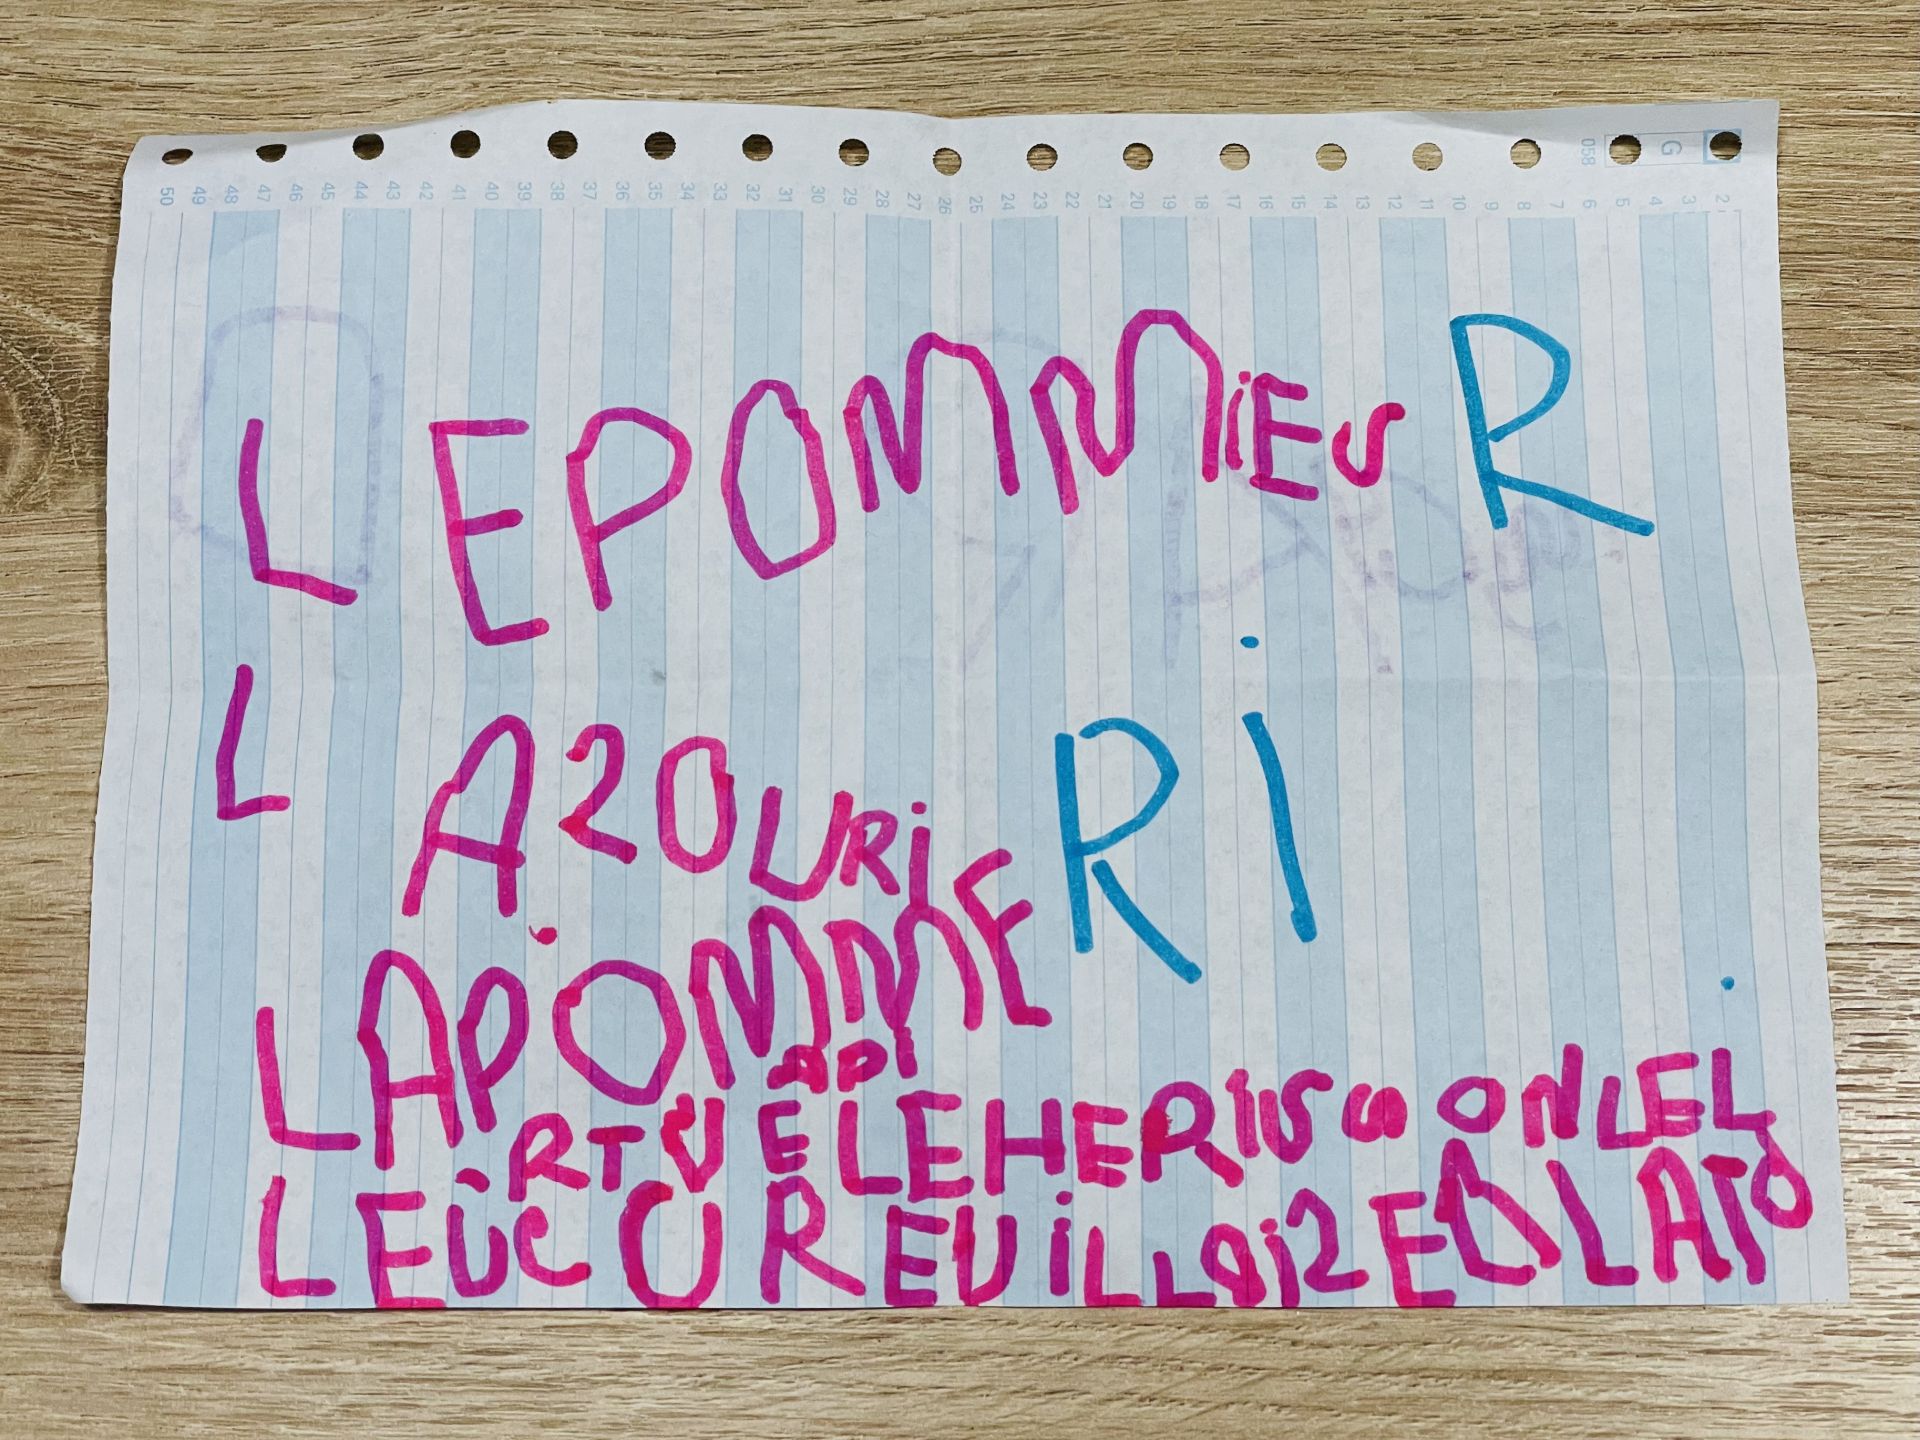 G 058
50 49 48 47 46 45 44 43 42 41 40 39 38 37 36 35 34 33 32 31 30 29 28 27 26 25 24 23 22 21 20 19 18 17 16 15 14 13 12 11 10 9 8 7 6 5 4 3 2
LEPOMMiES R
LA2OURi Ri
LAPOMME
API
LEHERISSON LEL
LEUCUREUiL
LATO